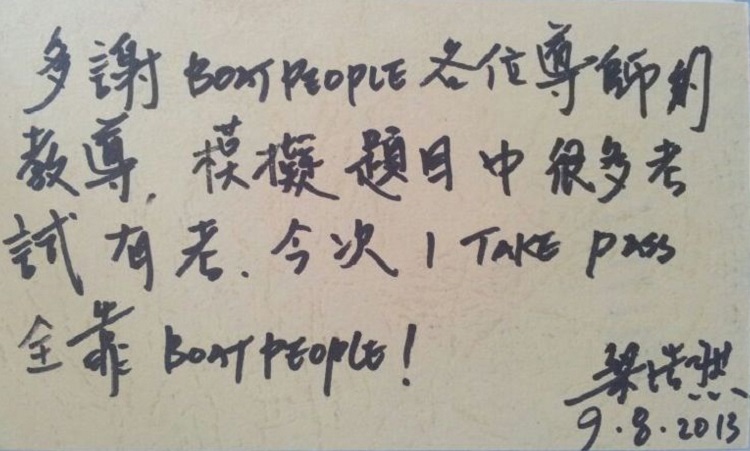 多謝 BOATPEOPLE 各位導師的
教導, 模擬題目中很多考
試有考. 今次 1 TAKE PASS
全靠 BOATPEOPLE!
梁浩燃
9.8.2013